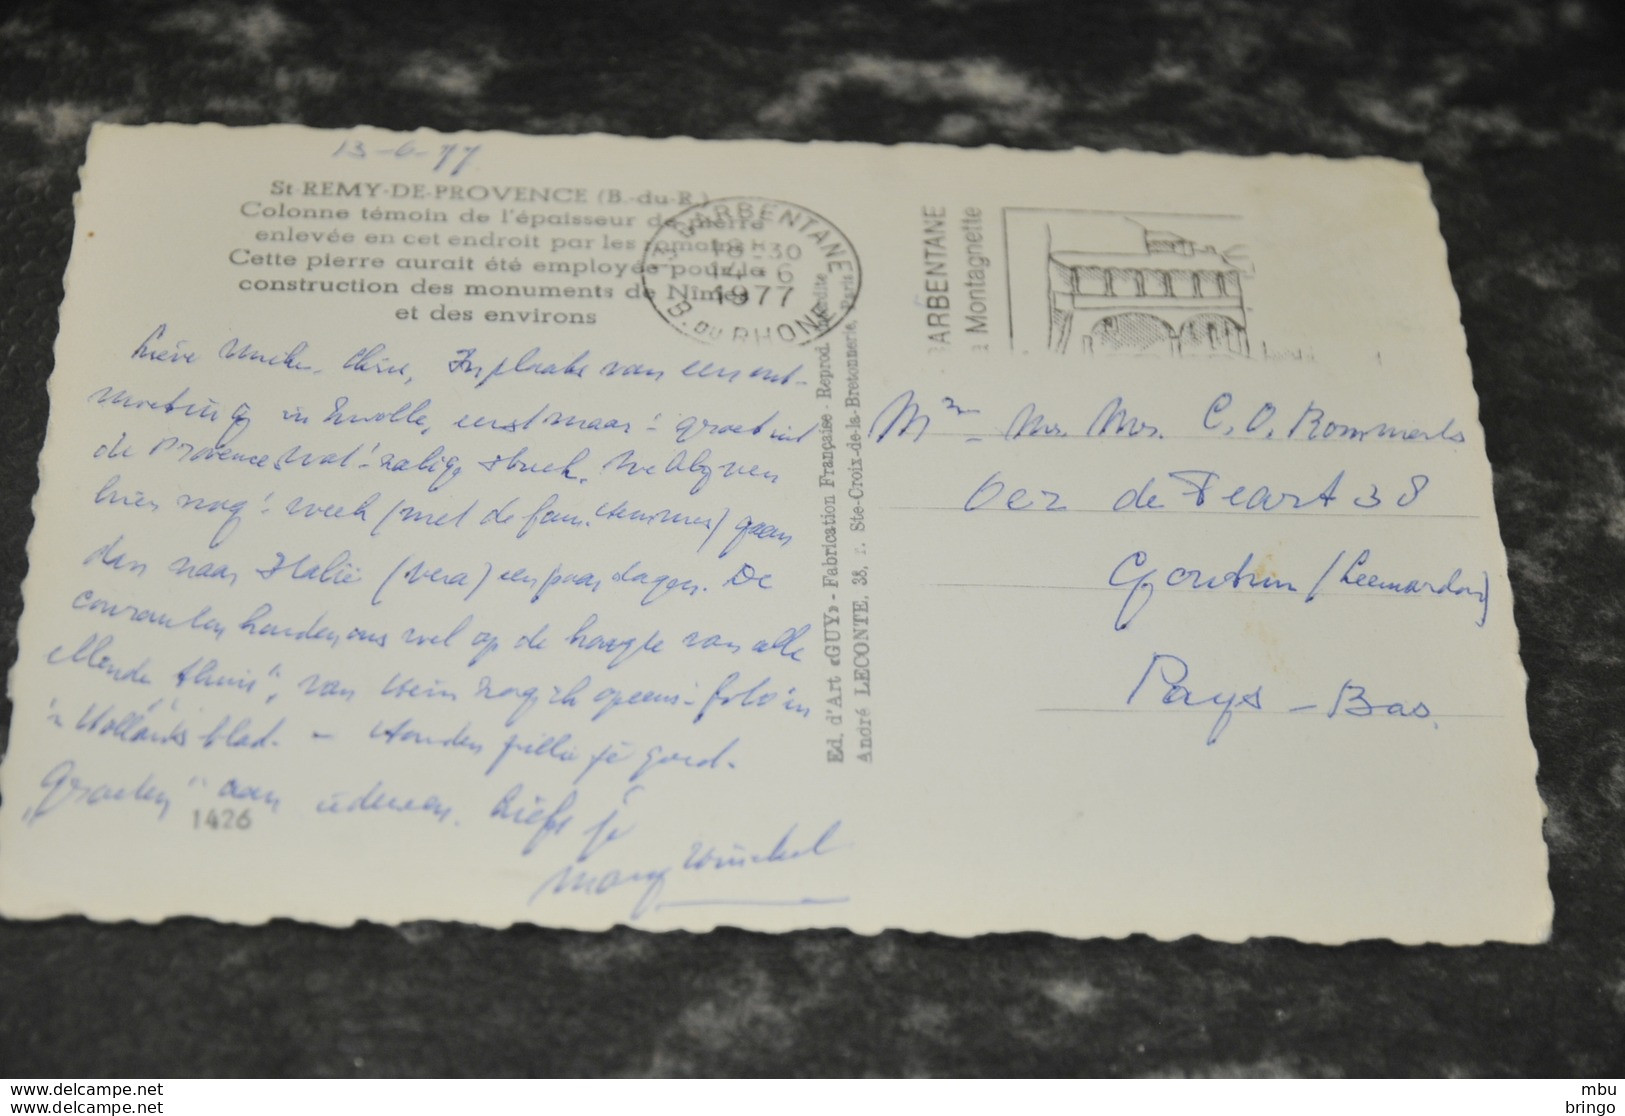 13-6-77
St-REMY-DE-PROVENCE (B.-du-R.)
Colonne témoin de l'épaisseur de pierre
enlevée en cet endroit par les romains
Cette pierre aurait été employée pour la
construction des monuments de Nîmes
et des environs
BARBENTANE
18H30
14-6
1977
B. DU RHONE
BARBENTANE
Montagnette
Lieve In plaats van een ont-
moeting in Zwolle, eerst maar 'n groet uit
de Provence. Wat 'n zalige streek. We blijven
hier nog 'n week (met de fam. ) gaan
dan naar Italië (Vera) een paar dagen. De
couranten houden ons wel op de hoogte van alle
ellende thuis, van foto in
'n Hollands blad. - Houden jullie je goed.
"Groeten" aan iedereen. Liefs je
Mary Winkel
1426
Ed. d'Art «GUY» - Fabrication Française - Reprod. interdite
André LECONTE, 38, r. Ste-Croix-de-la-Bretonnerie, Paris
Mr. Mrs. C. O. Rommerts
38
Goutum (Leeuwarden)
Pays-Bas.
mbu
bringo